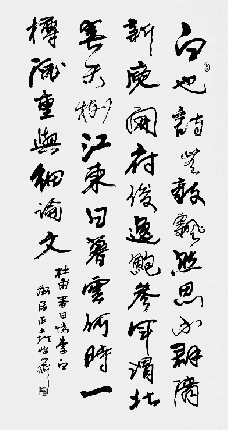 白也詩無敵飄然思不群清
新庾開府俊逸鮑參軍渭北
春天樹江東日暮雲何時一
樽酒重與細論文
杜甫春日憶李白